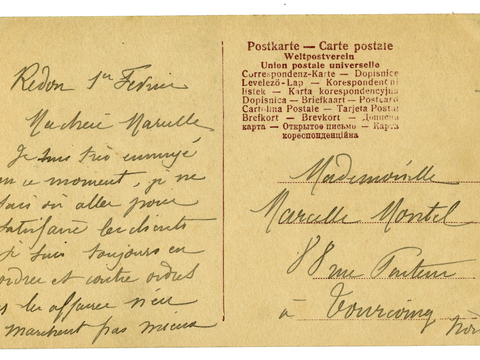 Redon 1er Fevrier
Ma cheie Marcelle
Je suis trés ennuyé
en ce moment, je ne
sais où aller pour
satisfaire les clients
je suis toujours en
ordres et contre ordres
les affaires n'en
marchent pas mieux
Postkarte — Carte postale
Weltpostverein
Union postale universelle
Correspondenz-Karte — Dopisnice
Levelező-Lap — Korespondenční
lístek — Karta korespondencyjna
Dopisnica — Briefkaart — Postcard
Cartolina Postale — Tarjeta Postal
Brefkort — Brevkort — Дописна
карта — Открытое письмо — Карта
кореспонденційна
Mademoiselle
Marcelle Montel
88 rue Pasteur
à Tourcoing
Nor